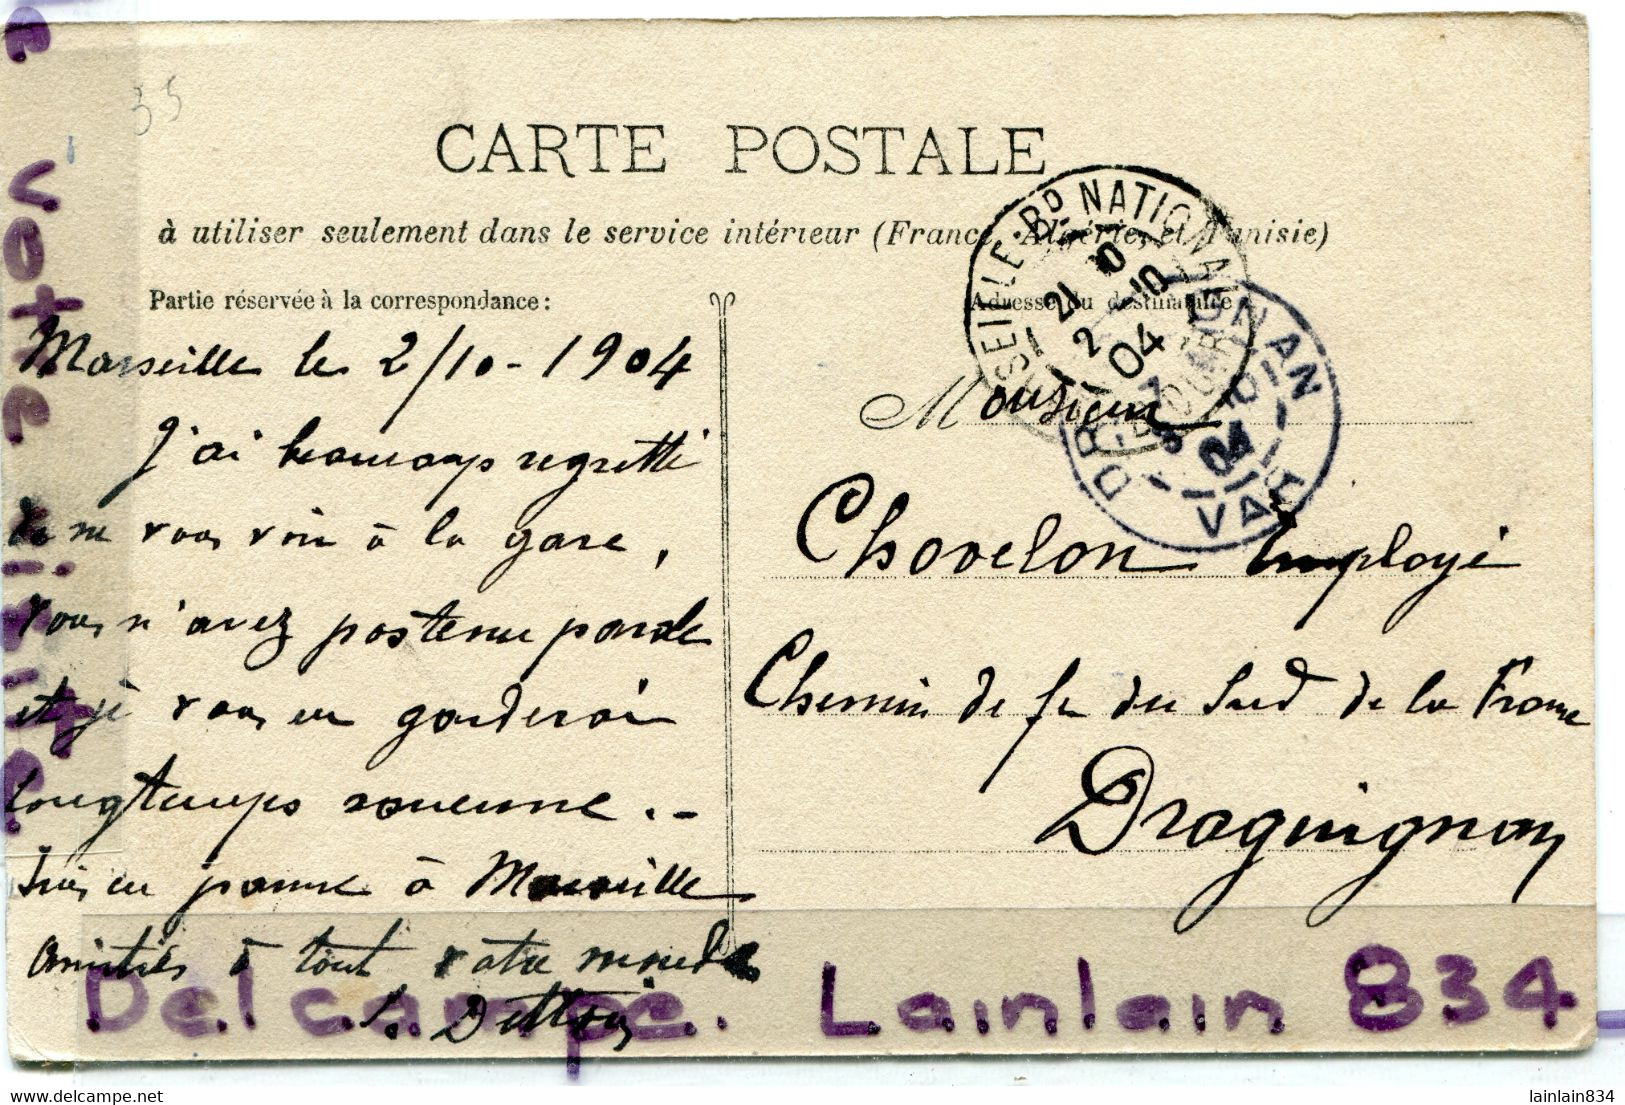 35
CARTE POSTALE
à utiliser seulement dans le service intérieur (France, Algérie, et Tunisie)
Partie réservée à la correspondance:
Adresse du destinataire
Marseille le 2/10-1904
J'ai beaucoup regretté
de ne vous voir à la gare,
vous n'avez pas tenu parole
et je vous en garderai
longtemps rancune.-
Suis en panne à Marseille
Amitiés à tout votre monde
Monsieur
Chovelon Employé
Chemin de fer du Sud de la France
Draguignan
MARSEILLE BD NATIONAL
21 10
2 10
04
DRAGUIGNAN
04
VAR
votre visite
Delcampe. Lainlain 834
Delcampe.net
lainlain834